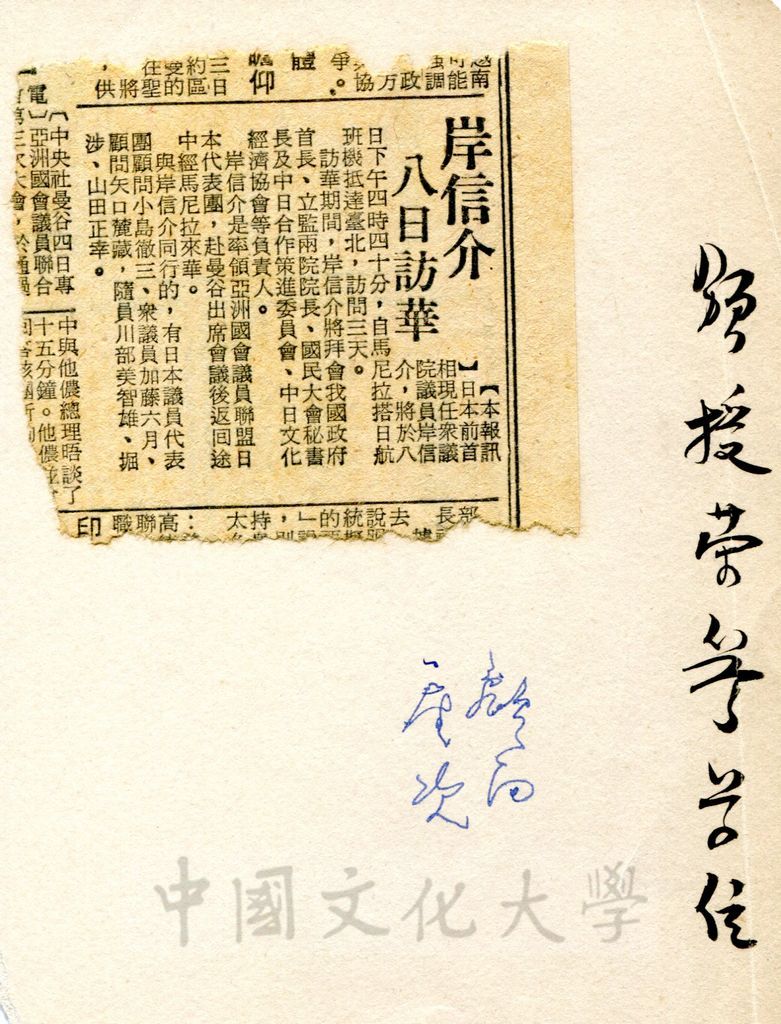 頒授榮譽學位
越南
可能
強調
政
万
協
爭。
體
瞻仰
三日
約區
受的
在聖
將
，供
岸信介
八日訪華
【本報訊
】日本前首
相現任衆議
院議員岸信
介，將於八
日下午四時四十分，自馬尼拉搭日航
班機抵達臺北，訪問三天。
訪華期間，岸信介將拜會我國政府
首長、立監兩院院長、國民大會秘書
長及中日合作策進委員會、中日文化
經濟協會等負責人。
岸信介是率領亞洲國會議員聯盟日
本代表團，赴曼谷出席會議後返回途
中經馬尼拉來華。
與岸信介同行的，有日本議員代表
團顧問小島徹三、衆議員加藤六月、
顧問矢口麓藏，隨員川部美智雄、掘
涉、山田正幸。
【中央社曼谷四日專
電】亞洲國會議員聯合
第三次大會，於通過
中與他儂總理晤談了
十五分鐘。他儂並
部
長
去
說
統
的
」
，
持
太
：
高
聯
職
印
中國文化大學